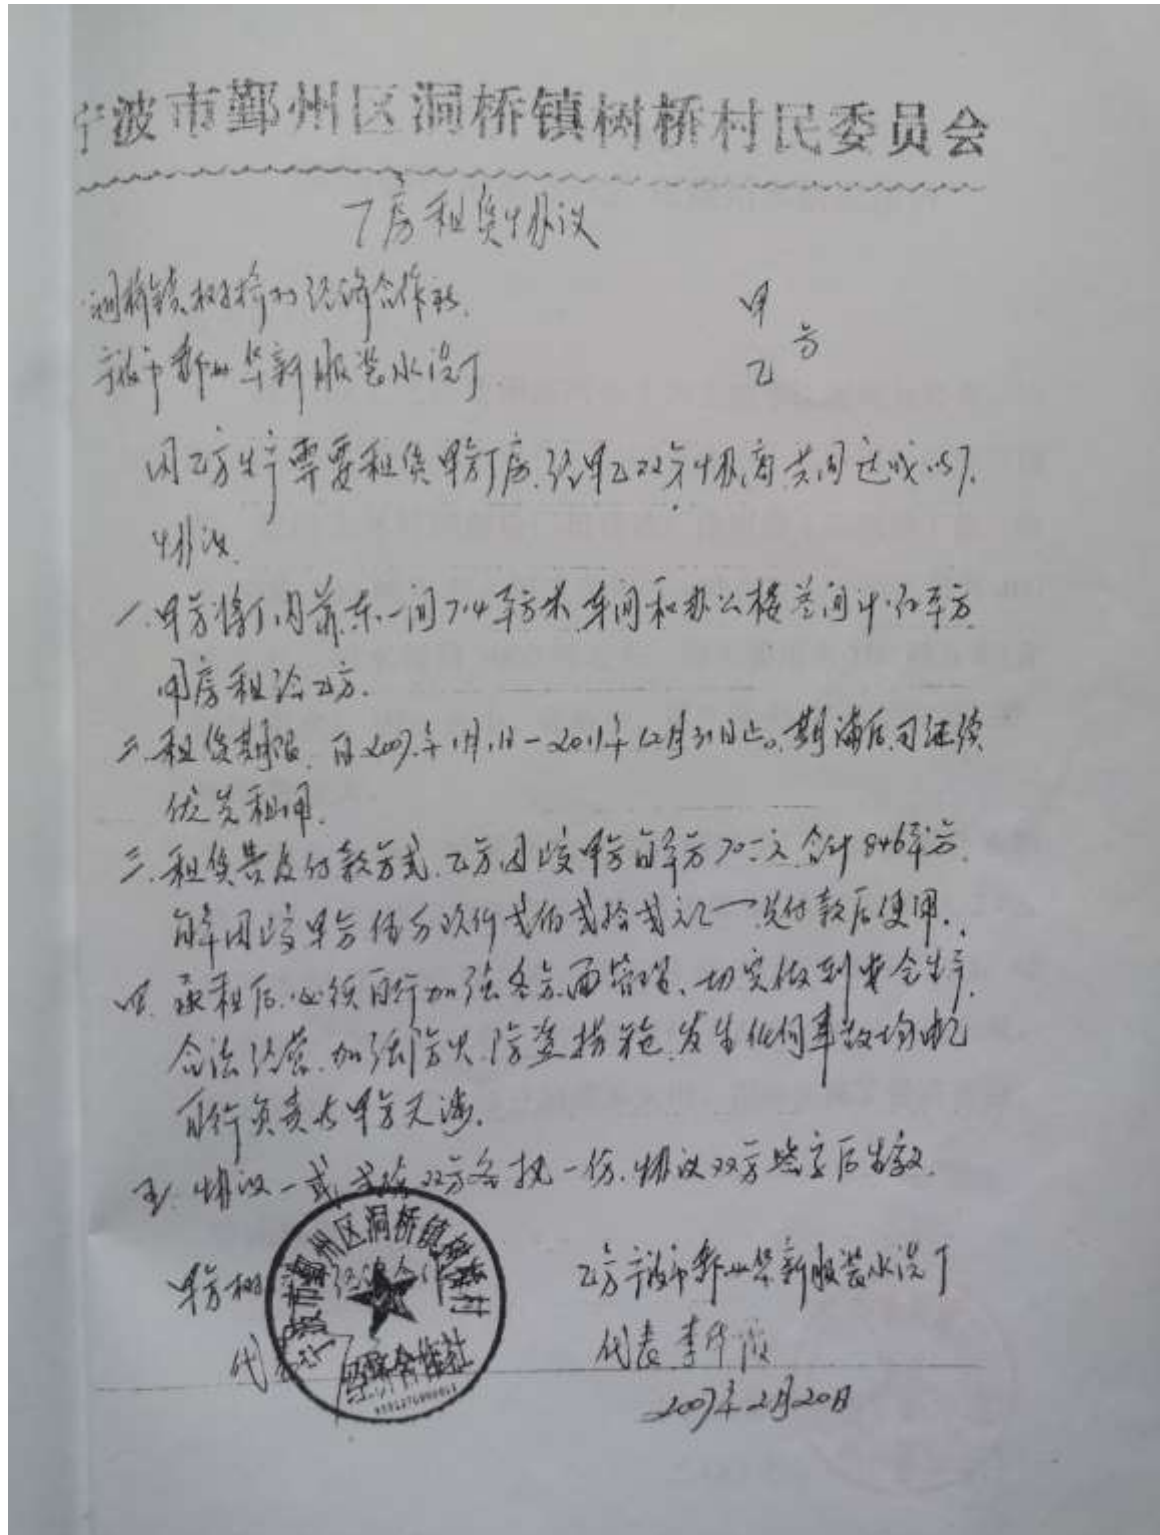 宁波市鄞州区洞桥镇树桥村民委员会
厂房租赁协议
洞桥镇树桥村经济合作社 甲
方
宁波市鄞州华新服装水洗厂 乙
因乙方生产需要租赁甲方厂房,经甲乙双方协商共同达成以下
协议
一.甲方将厂内前东一间714平方米车间和办公楼叁间计 平方
用房租给乙方.
二.租赁期限,自2007年1月1日-2011年12月31日止。期满后可继续
优先租用.
三.租赁费及付款方式.乙方因 甲方每平方70元,合计846平方.
每年 甲方伍万玖仟贰佰贰拾贰元 付款后使用.
四.承租后,必须自行加强各方面管理、切实做到安全生产,
合法经营.加强防火、防盗措施,发生任何事故均由乙
自行负责与甲方无涉.
五.协议一式贰份双方各执一份.协议双方签字后生效.
甲方树 经济合作
乙方宁波市鄞州华新服装水洗厂
代表
代表李华
2007年2月20日
宁波市鄞州区洞桥镇树桥村
经济合作社